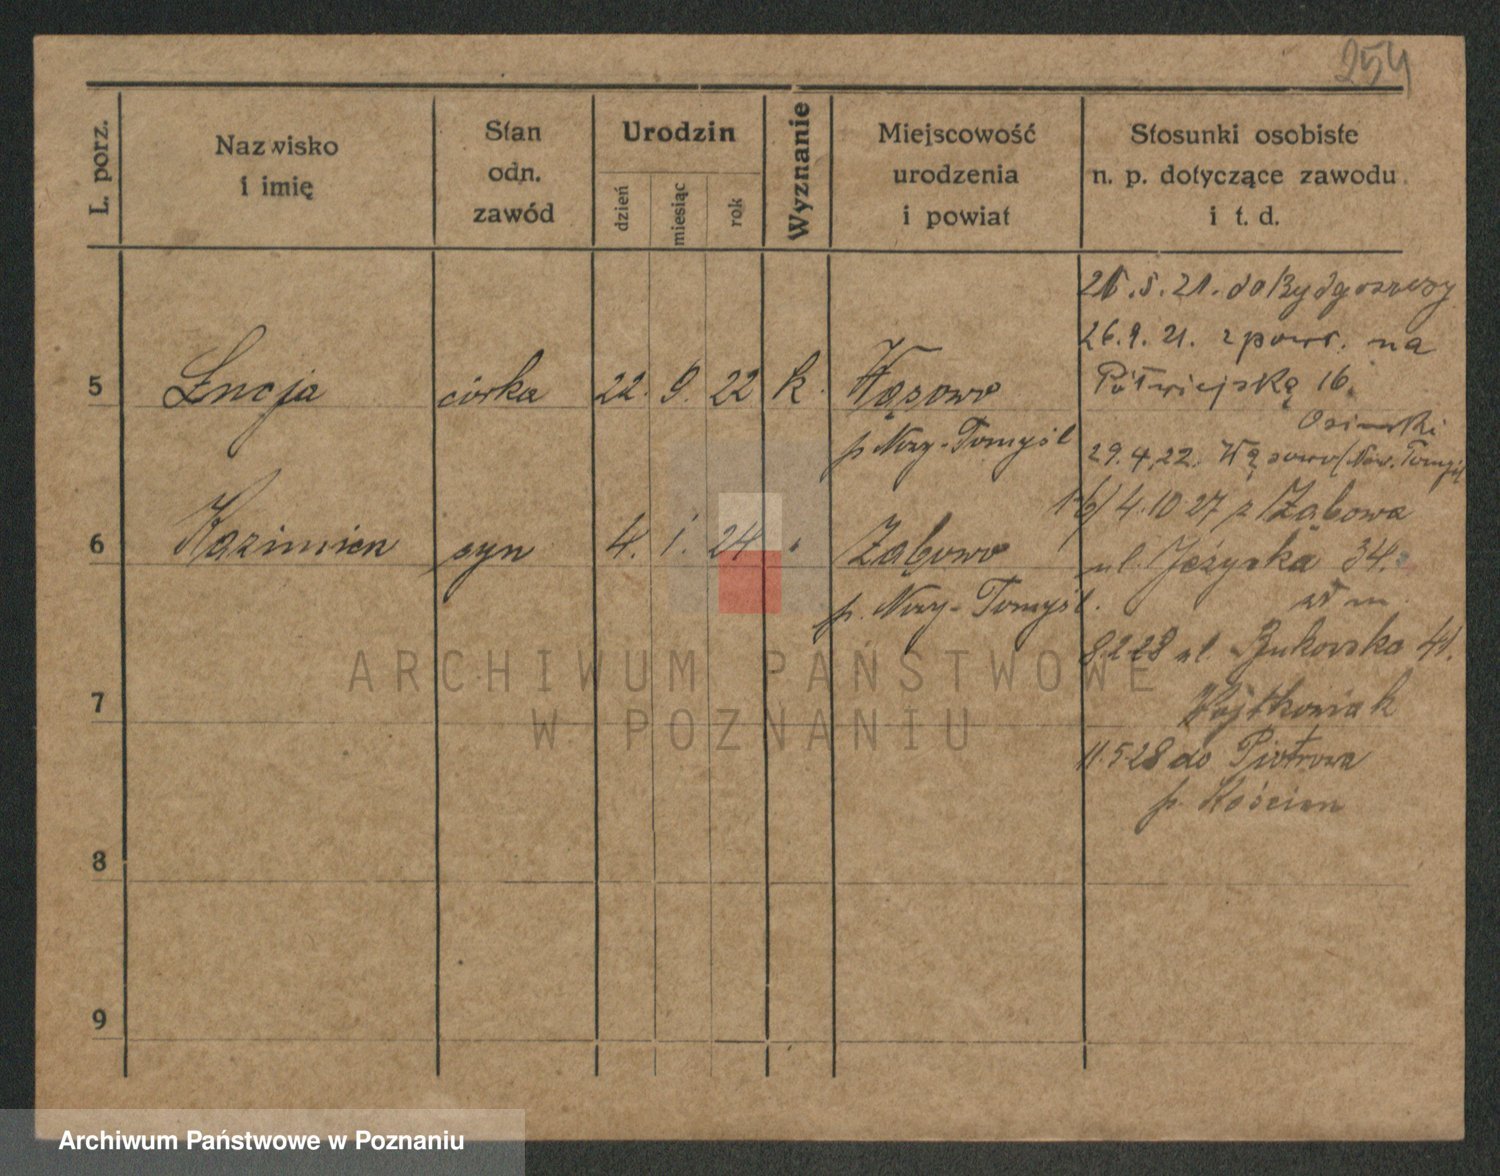 254
L. porz.
Nazwisko
i imię
Stan
odn.
zawód
Urodzin
dzień
miesiąc
rok
Wyznanie
Miejscowość
urodzenia
i powiat
Stosunki osobiste
n. p. dotyczące zawodu
i t. d.
5 Łucja córka 22. 9. 22 k. Wąsowo
p. Nowy-Tomyśl
6 Kazimierz syn 4. 1. 24 Ząbowo
p. Nowy-Tomyśl.
7
8
9
5. 21. do Bydgoszczy
26. 9. 21. z powr. na
Półwiejską 16.
29. 4. 22. Wąsowo/Now. Tomyśl
1-6/ 4.10.27 z Ząbowa
ul. Jeżycka 34.
8.2.28 ul. Bukowska 41.
Wojtkowiak
11.5.28 do Piotrowa
p. Kościan
ARCHIWUM PAŃSTWOWE
W POZNANIU
Archiwum Państwowe w Poznaniu